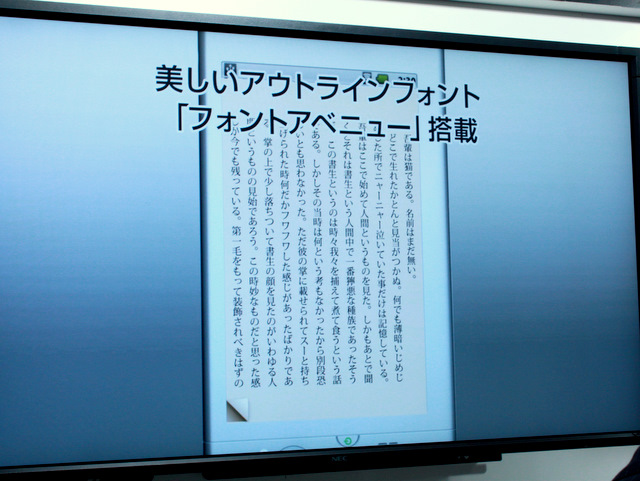 美しいアウトラインフォント
「フォントアベニュー」搭載
輩は猫である。名前はまだ無い。
どこで生れたかとんと見当がつかぬ。何でも薄暗いじめじ
した所でニャーニャー泣いていた事だけは記憶している。
吾輩はここで始めて人間というものを見た。しかもあとで聞
とそれは書生という人間中で一番獰悪な種族であったそう
。この書生というのは時々我々を捕えて煮て食うという話
である。しかしその当時は何という考もなかったから別段恐
いとも思わなかった。ただ彼の掌に載せられてスーと持ち
げられた時何だかフワフワした感じがあったばかりであ
。掌の上で少し落ちついて書生の顔を見たのがいわゆる人
間というものの見始であろう。この時妙なものだと思った感
が今でも残っている。第一毛をもって装飾されべきはずの
NEC